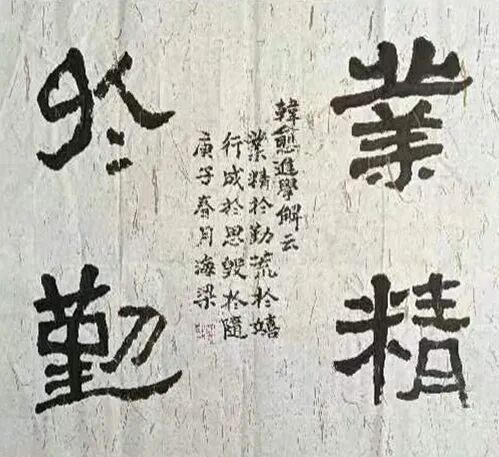 業精
於勤
韓愈進學解云
業精於勤荒於嬉
行成於思毀於隨
庚子春月海梁